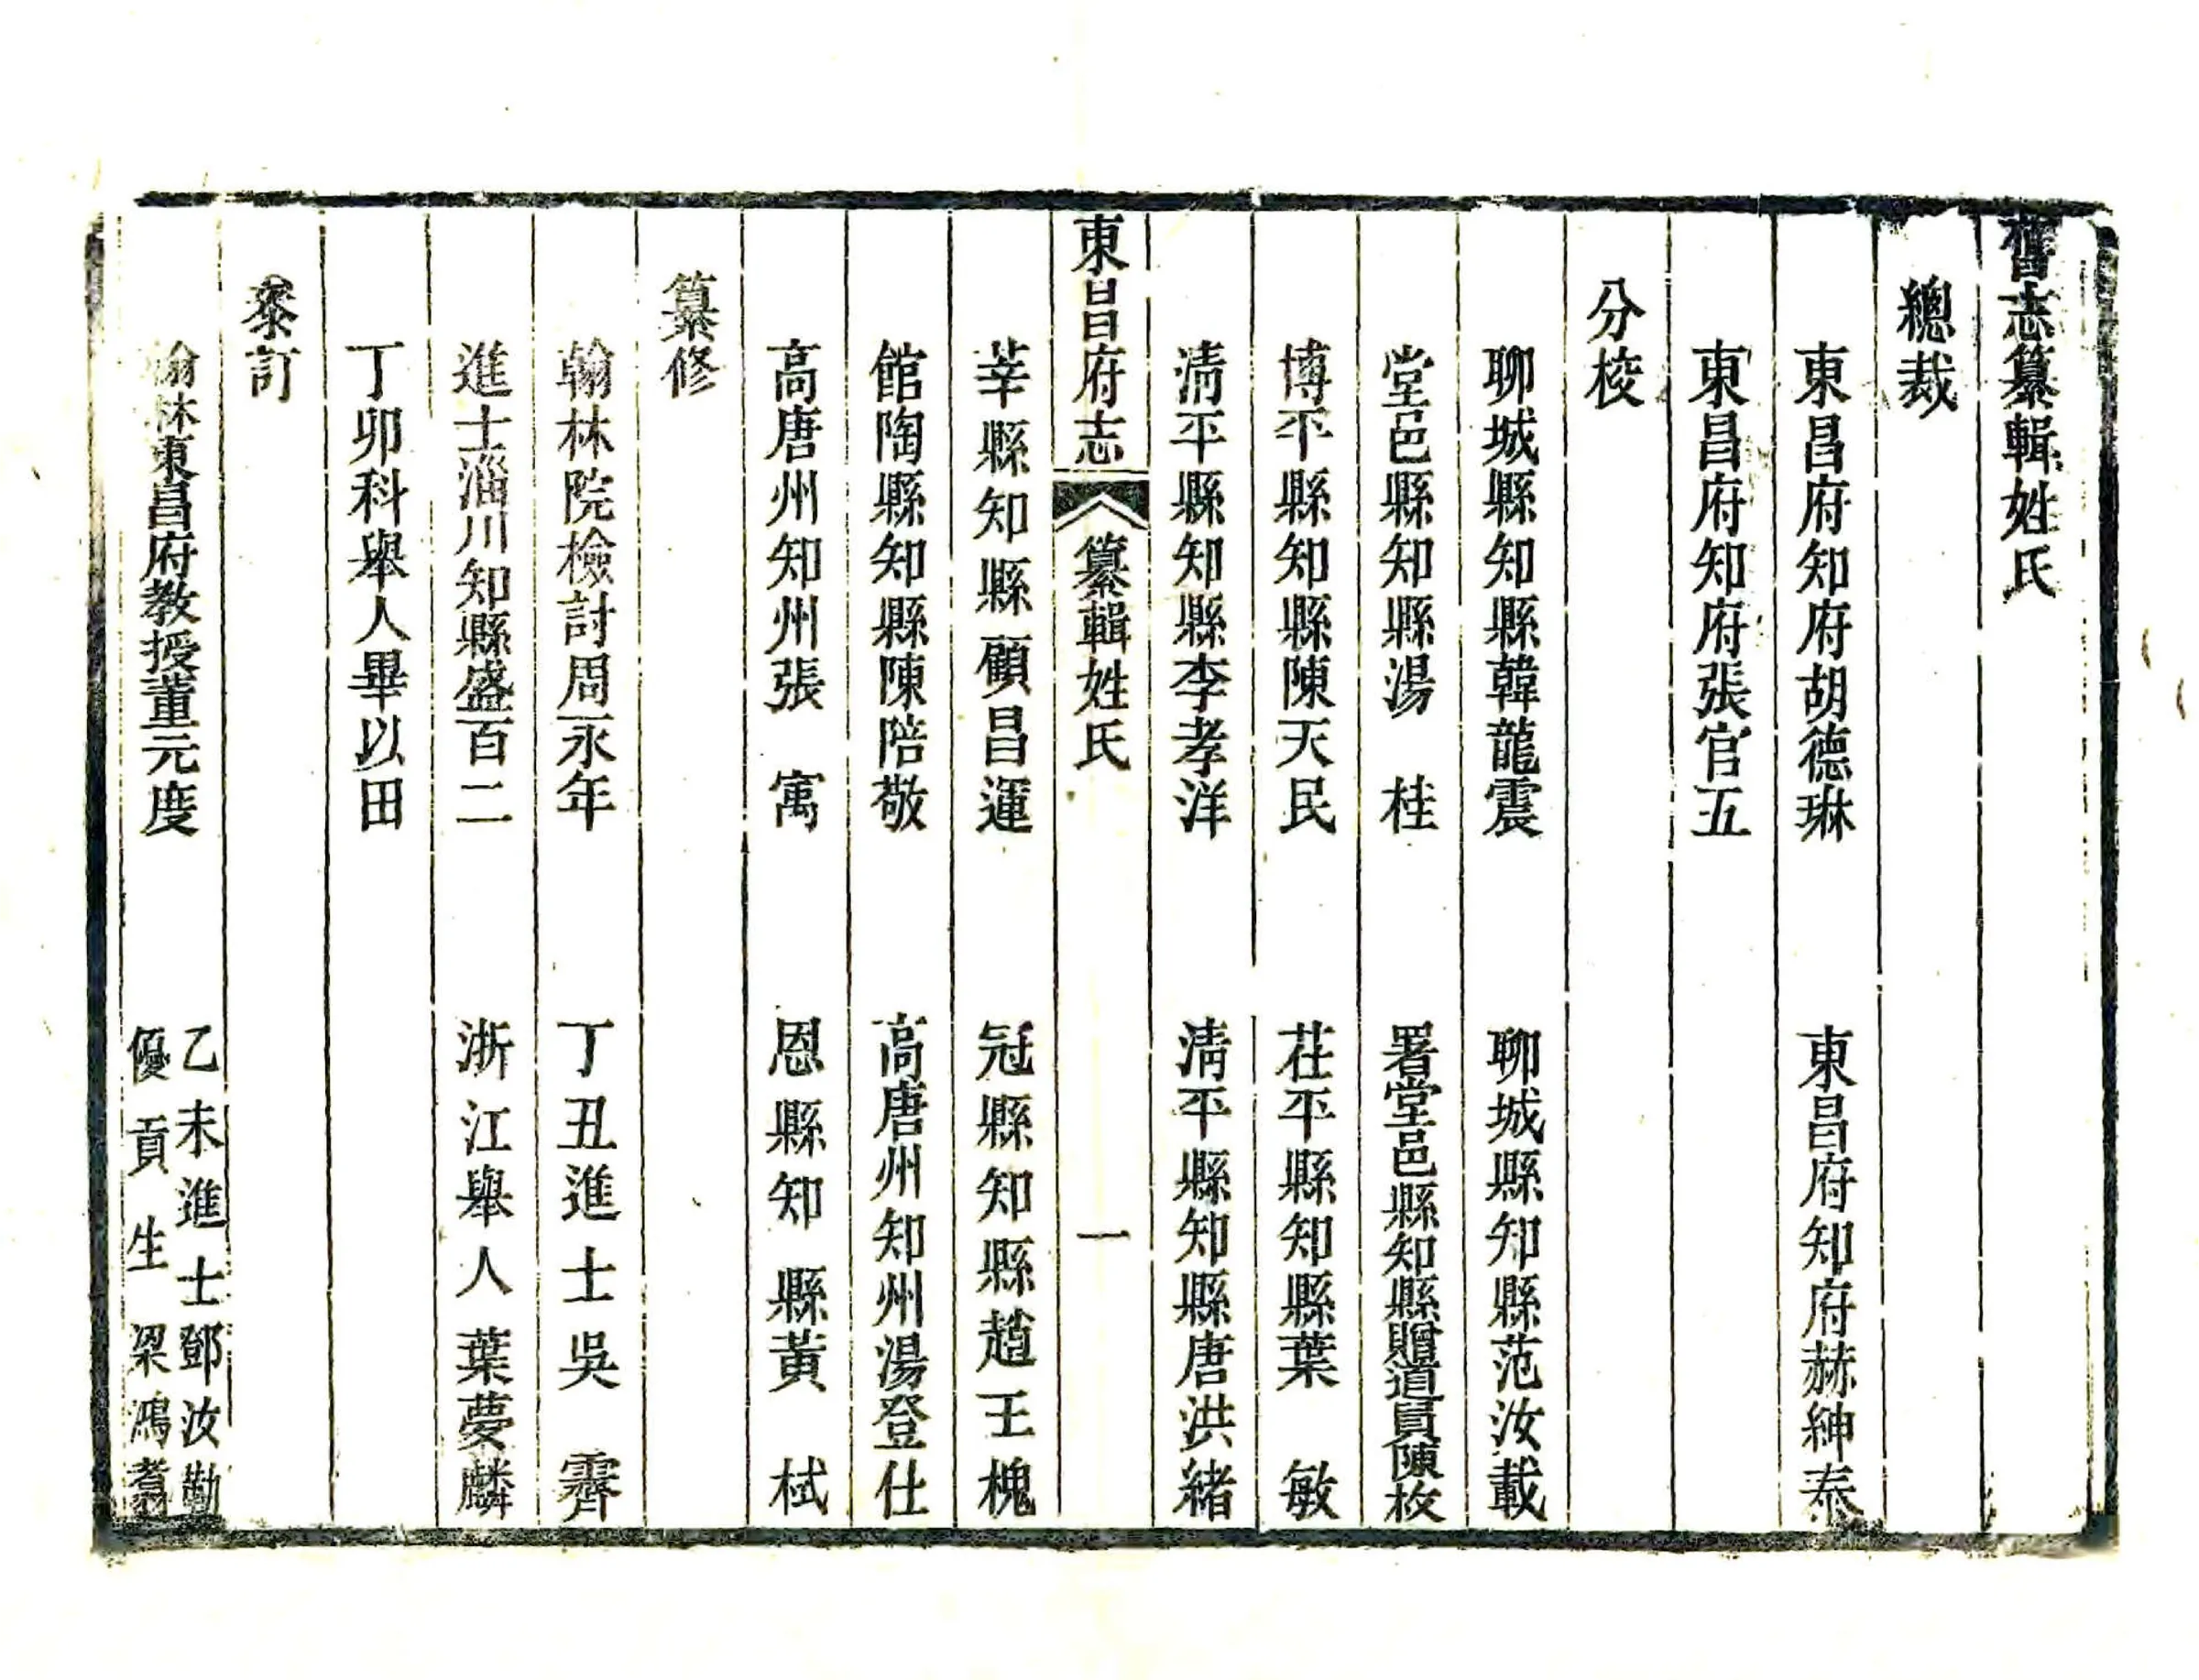 舊志纂輯姓氏
總裁
東昌府知府胡德琳　東昌府知府赫紳泰
東昌府知府張官五
分校
聊城縣知縣韓龍震　聊城縣知縣范汝載
堂邑縣知縣湯　桂　署堂邑縣知縣贈道員陳枚
博平縣知縣陳天民　茌平縣知縣葉　敏
清平縣知縣李孝洋　清平縣知縣唐洪緒
東昌府志　纂輯姓氏　一
莘縣知縣顧昌運　冠縣知縣趙王槐
館陶縣知縣陳陪敬　高唐州知州湯登仕
高唐州知州張　寓　恩縣知縣黃　栻
纂修
翰林院檢討周永年　丁丑進士吳　霽
進士淄川知縣盛百二　浙江舉人葉夢麟
丁卯科舉人畢以田
叅訂
翰林東昌府教授董元度　乙未進士鄧汝勤
優貢生梁鴻翥